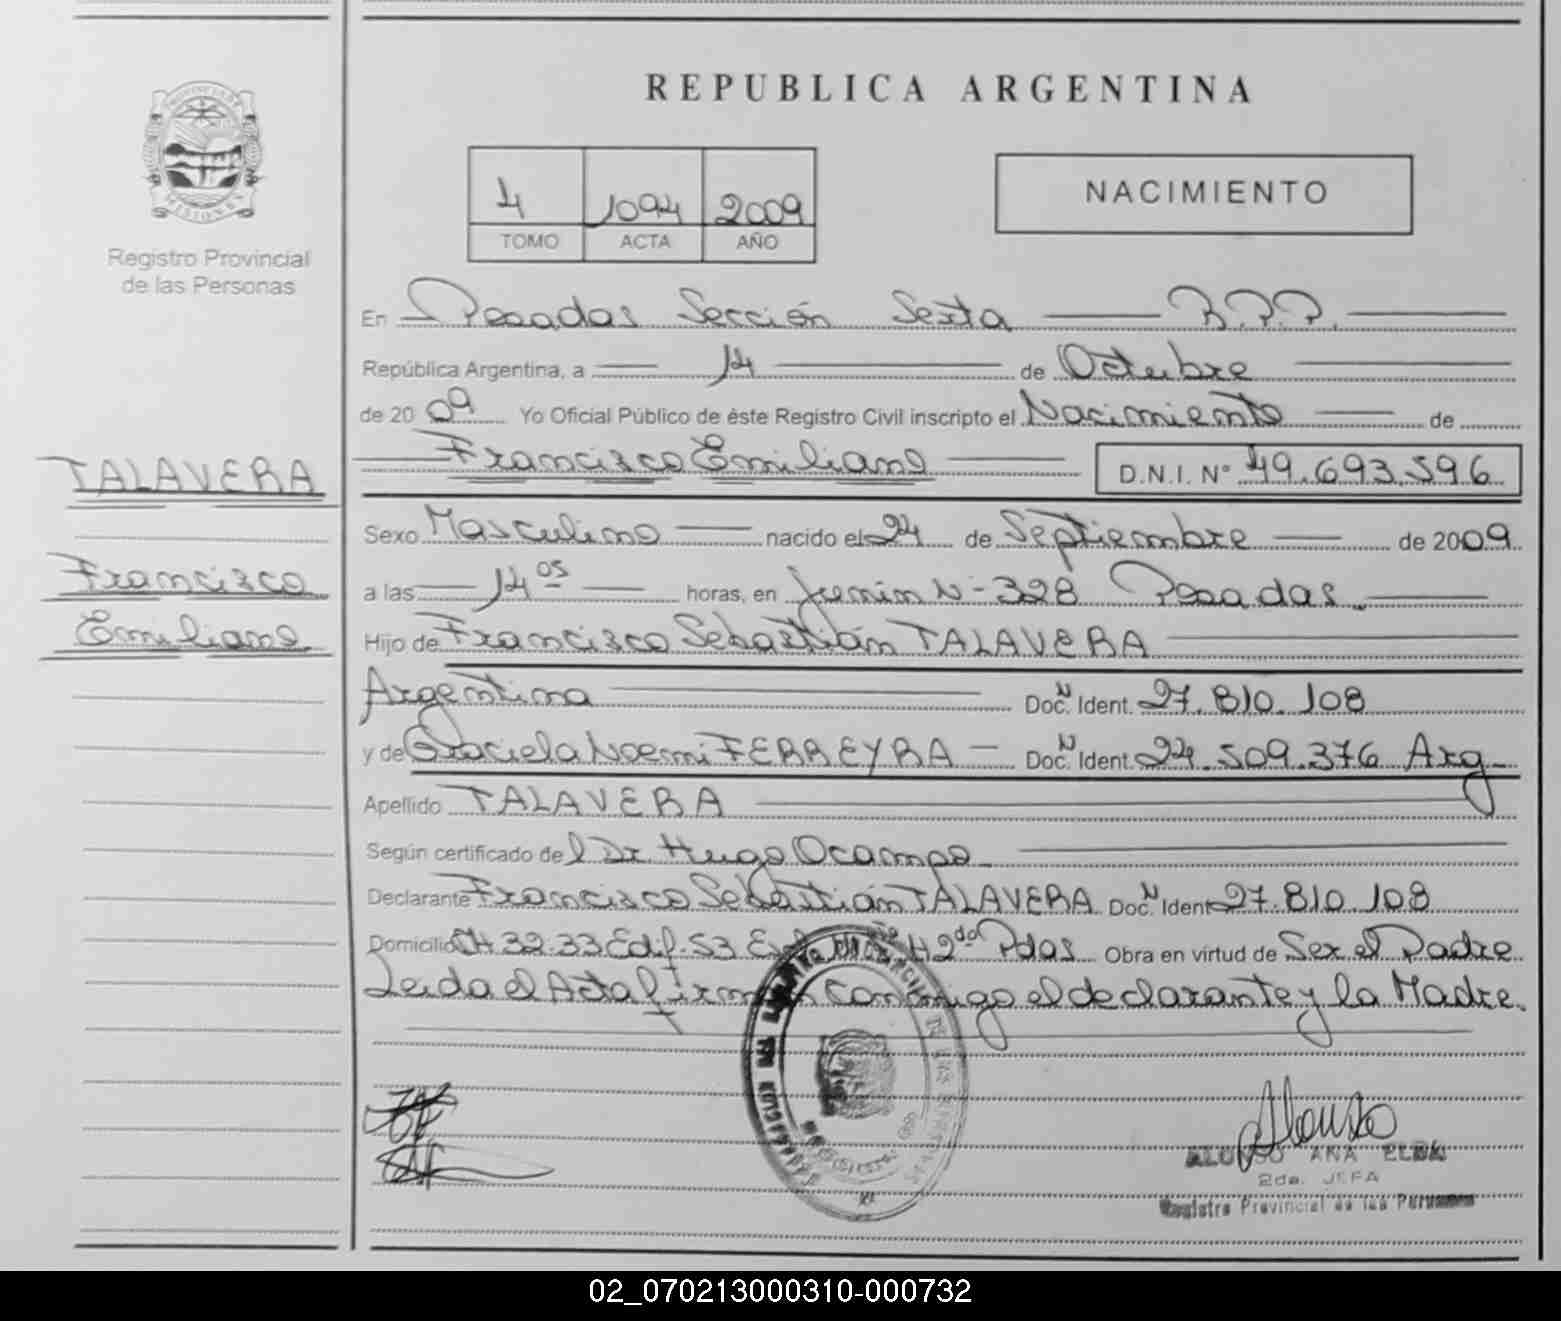 REPUBLICA ARGENTINA
PROVINCIA DE
MISIONES
Registro Provincial
de las Personas
4 1094 2009
TOMO ACTA AÑO
NACIMIENTO
En Posadas Sección Sexta R.P.P.
República Argentina, a 14 de Octubre
de 2009 Yo Oficial Público de éste Registro Civil inscripto el Nacimiento de
Francisco Emiliano D.N.I. N° 49.693.596
TALAVERA
Francisco
Emiliano
Sexo Masculino nacido el 24 de Septiembre de 2009
a las 14 05 horas, en Junín N- 328 Posadas.
Hijo de Francisco Sebastián TALAVERA
Argentina Doc. N Ident. 27.810.108
y de Graciela Noemi FERREYRA Doc. N Ident. 24.509.376 Arg
Apellido TALAVERA
Según certificado del Dr Hugo Ocampo
Declarante Francisco Sebastián TALAVERA Doc. N Ident 27.810.108
Domicilio CH 32.33 Edif. 53 42 Pdas Obra en virtud de Ser el Padre
Leida el Acta firman conmigo el declarante y la Madre.
Alonso
ALONSO ANA ELBA
2da. JEFA
Registro Provincial de las Personas
02_070213000310-000732